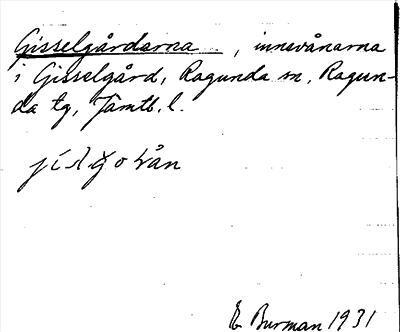 Gisselgårdarna, innevånarna
i Gisselgård, Ragunda sn, Ragun-
da tg, Jämtl. l.
E Burman 1931